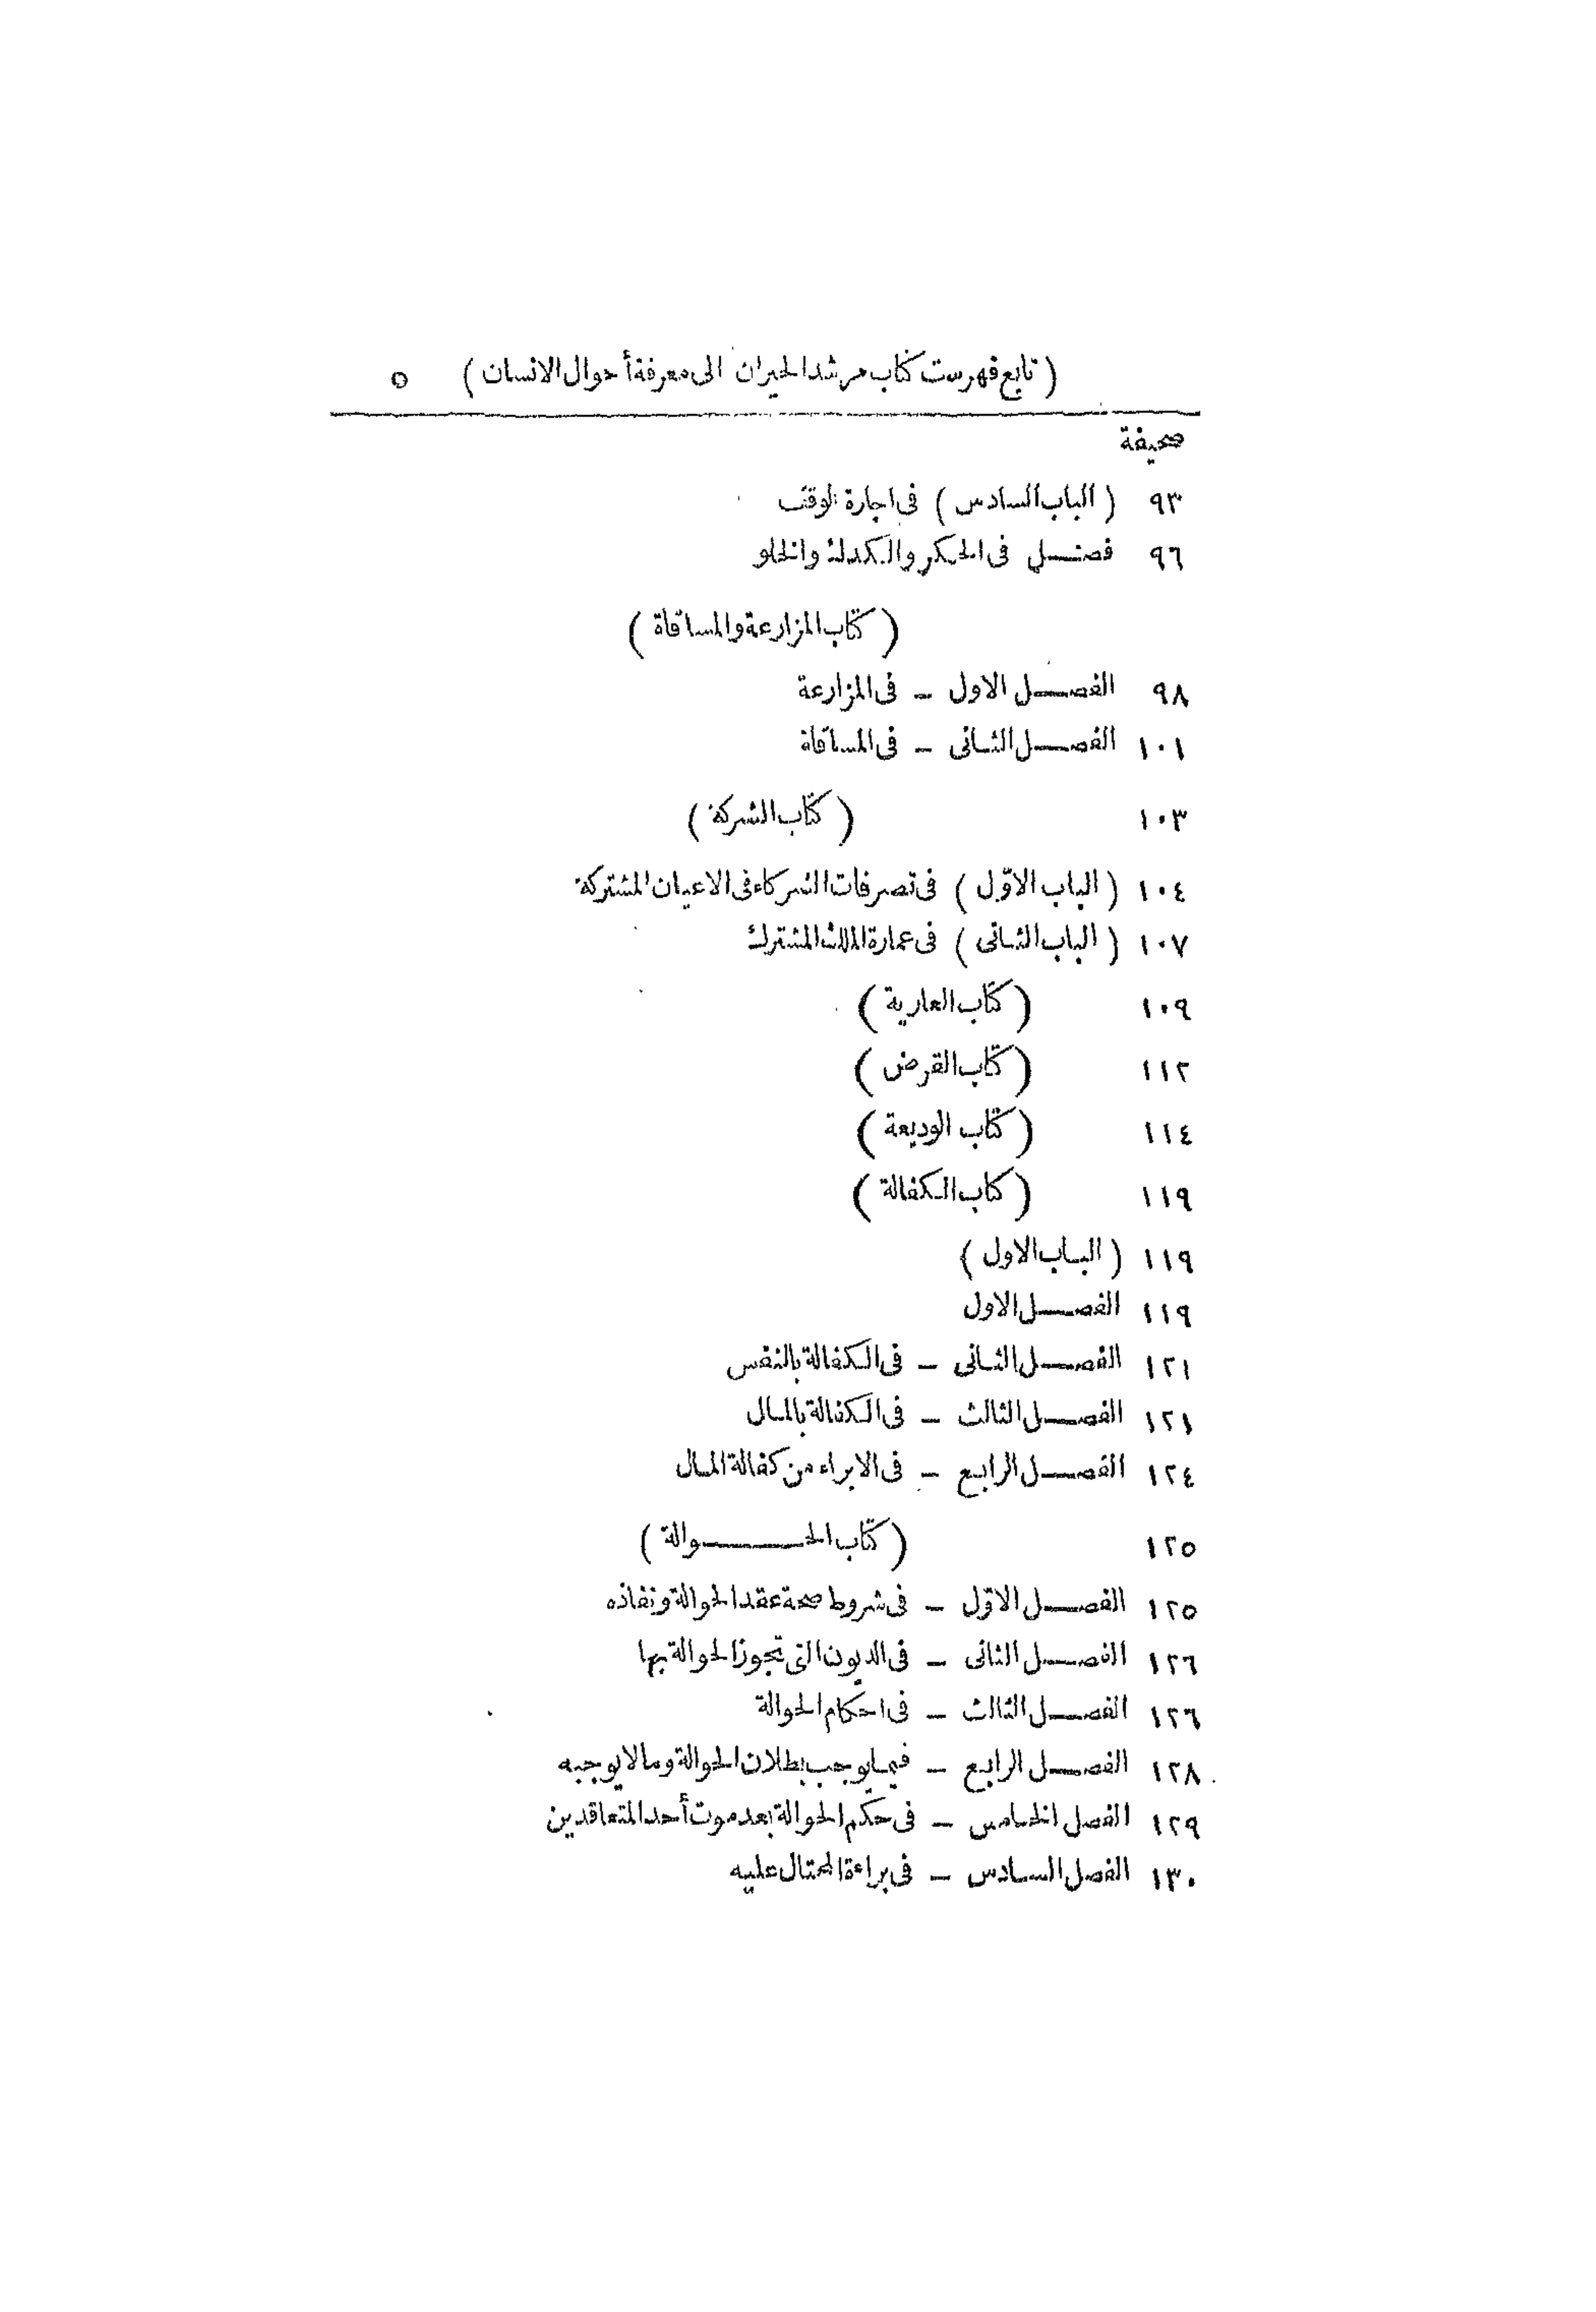 ( تابع فهرست كتاب مرشد الحيران الى معرفة أحوال الانسان ) ٥
صحيفة
٩٣ ( الباب السادس ) فى اجارة الوقف
٩٦ فصل فى الحكر والكدك والخلو
( كتاب المزارعة والمساقاة )
٩٨ الفصل الاول - فى المزارعة
١٠١ الفصل الثانى - فى المساقاة
١٠٣ ( كتاب الشركة )
١٠٤ ( الباب الاوّل ) فى تصرفات الشركاء فى الاعيان المشتركة
١٠٧ ( الباب الثانى ) فى عمارة الملك المشترك
١٠٩ ( كتاب العارية )
١١٢ ( كتاب القرض )
١١٤ ( كتاب الوديعة )
١١٩ ( كتاب الكفالة )
١١٩ ( الباب الاول )
١١٩ الفصل الاول
١٢١ الفصل الثانى - فى الكفالة بالنفس
١٢١ الفصل الثالث - فى الكفالة بالمال
١٢٤ الفصل الرابع - فى الابراء من كفالة المال
١٢٥ ( كتاب الحوالة )
١٢٥ الفصل الاوّل - فى شروط صحة عقد الحوالة ونفاذه
١٢٦ الفصل الثانى - فى الديون التى تجوز الحوالة بها
١٢٦ الفصل الثالث - فى احكام الحوالة
١٢٨ الفصل الرابع - فيما يوجب بطلان الحوالة وما لا يوجبه
١٢٩ الفصل الخامس - فى حكم الحوالة بعد موت أحد المتعاقدين
١٣٠ الفصل السادس - فى براءة المحتال عليه